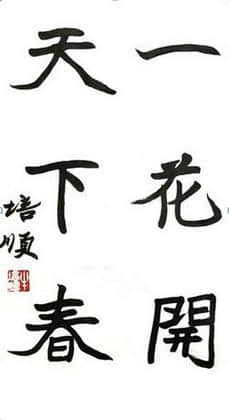 一花開
天下春
培順